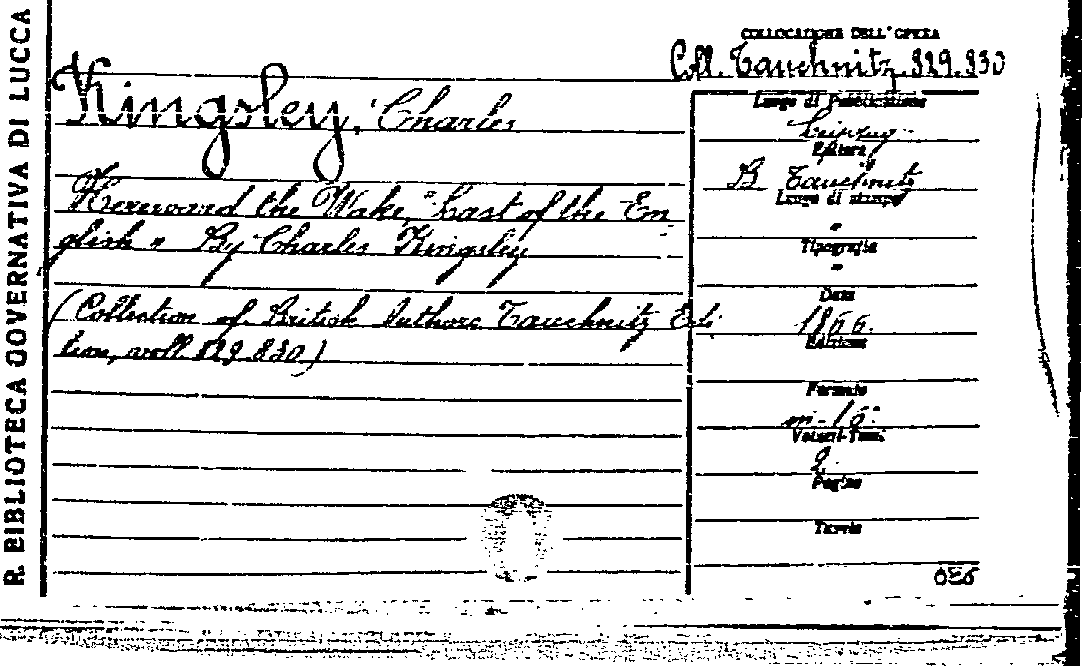 R. BIBLIOTECA GOVERNATIVA DI LUCCA
COLLOCAZIONE DELL'OPERA
Coll. Tauchnitz. 829.830
Kingsley, Charles
Hereward the Wake, "Last of the En
glish" By Charles Kingsley
(Collection of British Authors Tauchnitz Edi
tion, voll. 829 830)
Luogo di Pubblicazione
Leipzig
Editore
B Tauchnitz
Luogo di stampa
"
Tipografia
"
Data
1866.
Edizione
Formato
in-16°
Volumi-Tomi
2.
Pagine
Tavole